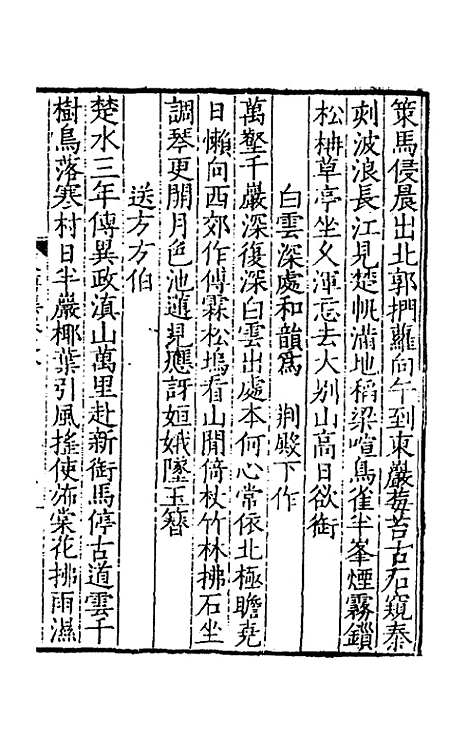 策馬侵晨出北郭捫蘿向午到東巖莓苔古石窺秦
刺波浪長江見楚帆滿地稻梁喧鳥雀半峯煙霧鎖
松枏草亭坐久渾忘去大别山高日欲銜
白雲深處和韻爲　荆殿下作
萬壑千巖深復深白雲出處本何心常依北極瞻堯
日懶向西郊作傅霖松塢看山閒倚杖竹林拂石坐
調琴更開月色池邊見應訝姮娥墜玉簪
送方方伯
楚水三年傳異政滇山萬里赴新銜馬停古道雲千
樹鳥落寒村日半巖椰葉引風搖使斾棠花拂雨濕